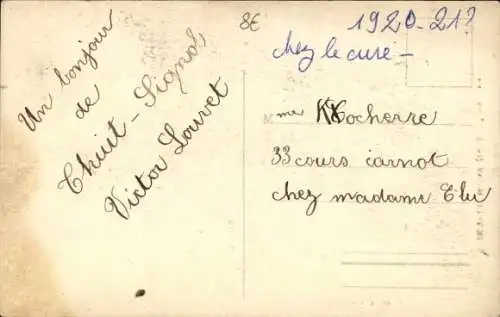 8€
1920-21?
chez le curé -
Un bonjour
de
Chuit - Signol
Victor Louvet
me KHocherre
33 cours carnot
chez madame Elu